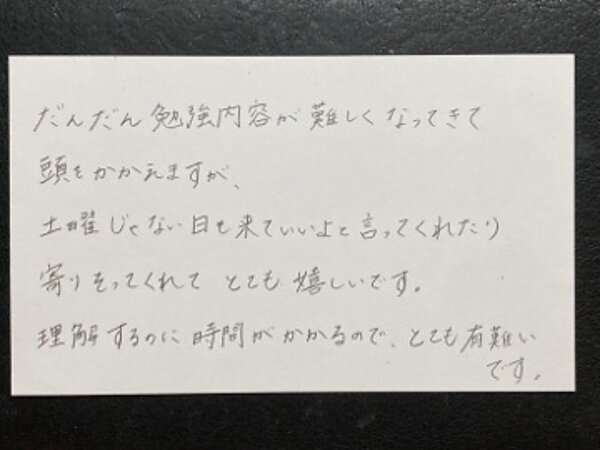 だんだん勉強内容が難しくなってきて
頭をかかえますが、
土曜じゃない日も来ていいよと言ってくれたり
寄りそってくれて とても嬉しいです。
理解するのに時間がかかるので、とても有難い
です。